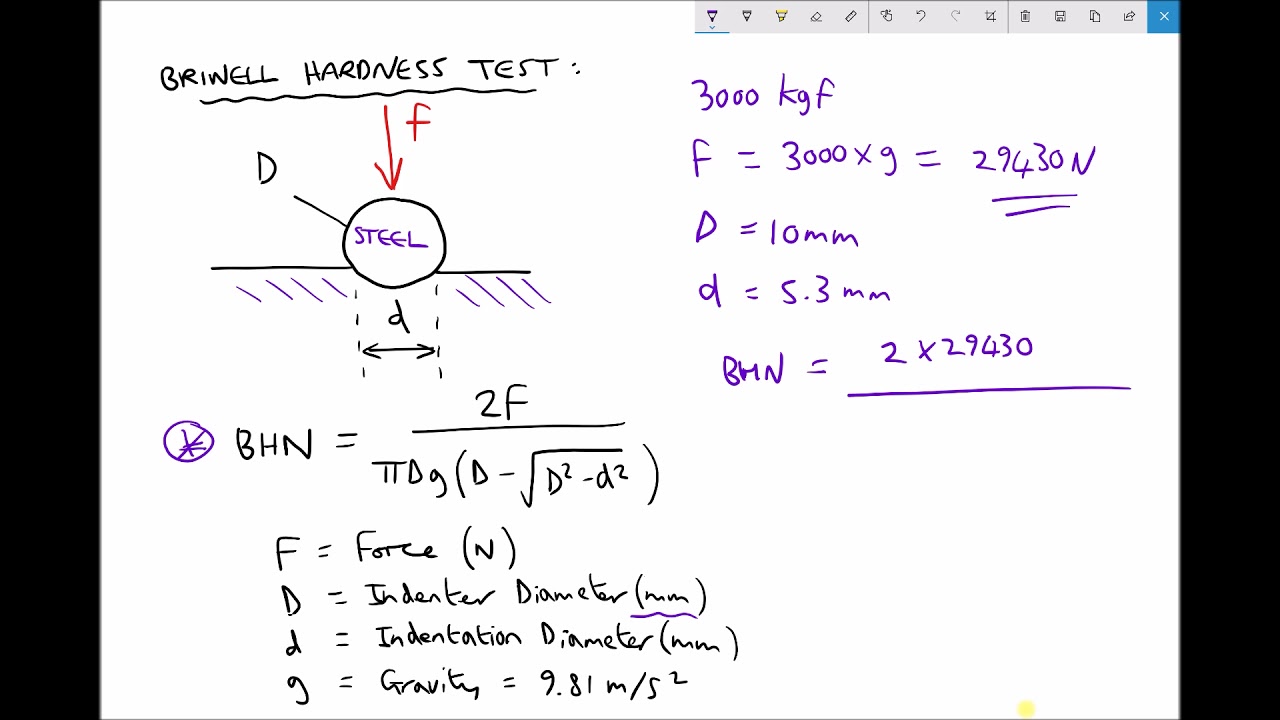 BRINELL HARDNESS TEST :
F
D
STEEL
d
BHN = 2F / πDg(D - √D² - d²)
F = Force (N)
D = Indenter Diameter (mm)
d = Indentation Diameter (mm)
g = Gravity = 9.81 m/s²
3000 kgf
F = 3000 × g = 29430 N
D = 10mm
d = 5.3 mm
BHN = 2 × 29430